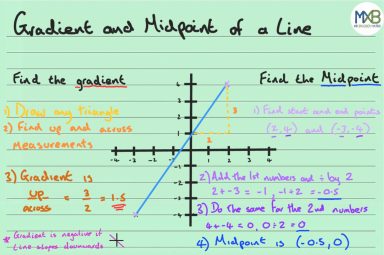 Gradient and Midpoint of a Line
MXB
Find the gradient
Find the Midpoint
1) Draw any triangle
2) Find up and across
measurements
3) Gradient is
up/across = 3/2 = 1.5
* Gradient is negative if
line slopes downwards
4
3
2
1
-4 -3 -2 -1 1 2 3 4
-1
-2
-3
-4
3
2
1) Find start and end points
(2,4) and (-3,-4)
2) Add the 1st numbers and ÷ by 2
2+-3 = -1, -1÷2 = -0.5
3) Do the same for the 2nd numbers
4+-4 = 0, 0÷2 = 0
4) Midpoint is (-0.5, 0)